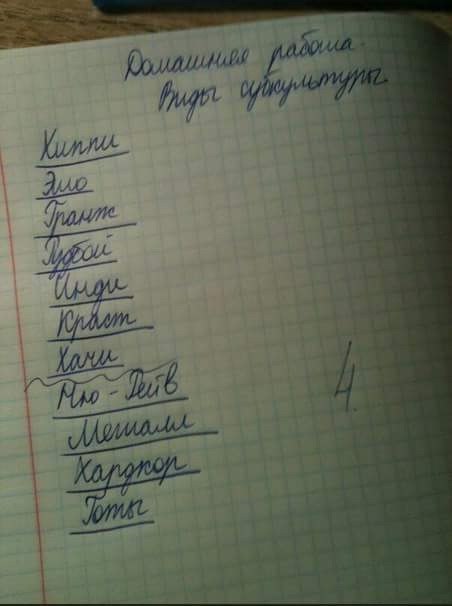 Домашняя работа.
Виды субкультуры
Хиппи
Эмо
Гранж
Гудбой
Инди
Краст
Хачи
Нью-Рейв
Металл
Хардкор
Готы
4